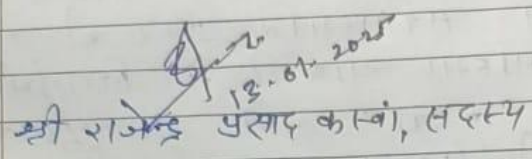 13.01.2025
श्री राजेन्द्र प्रसाद कास्वां, सदस्य